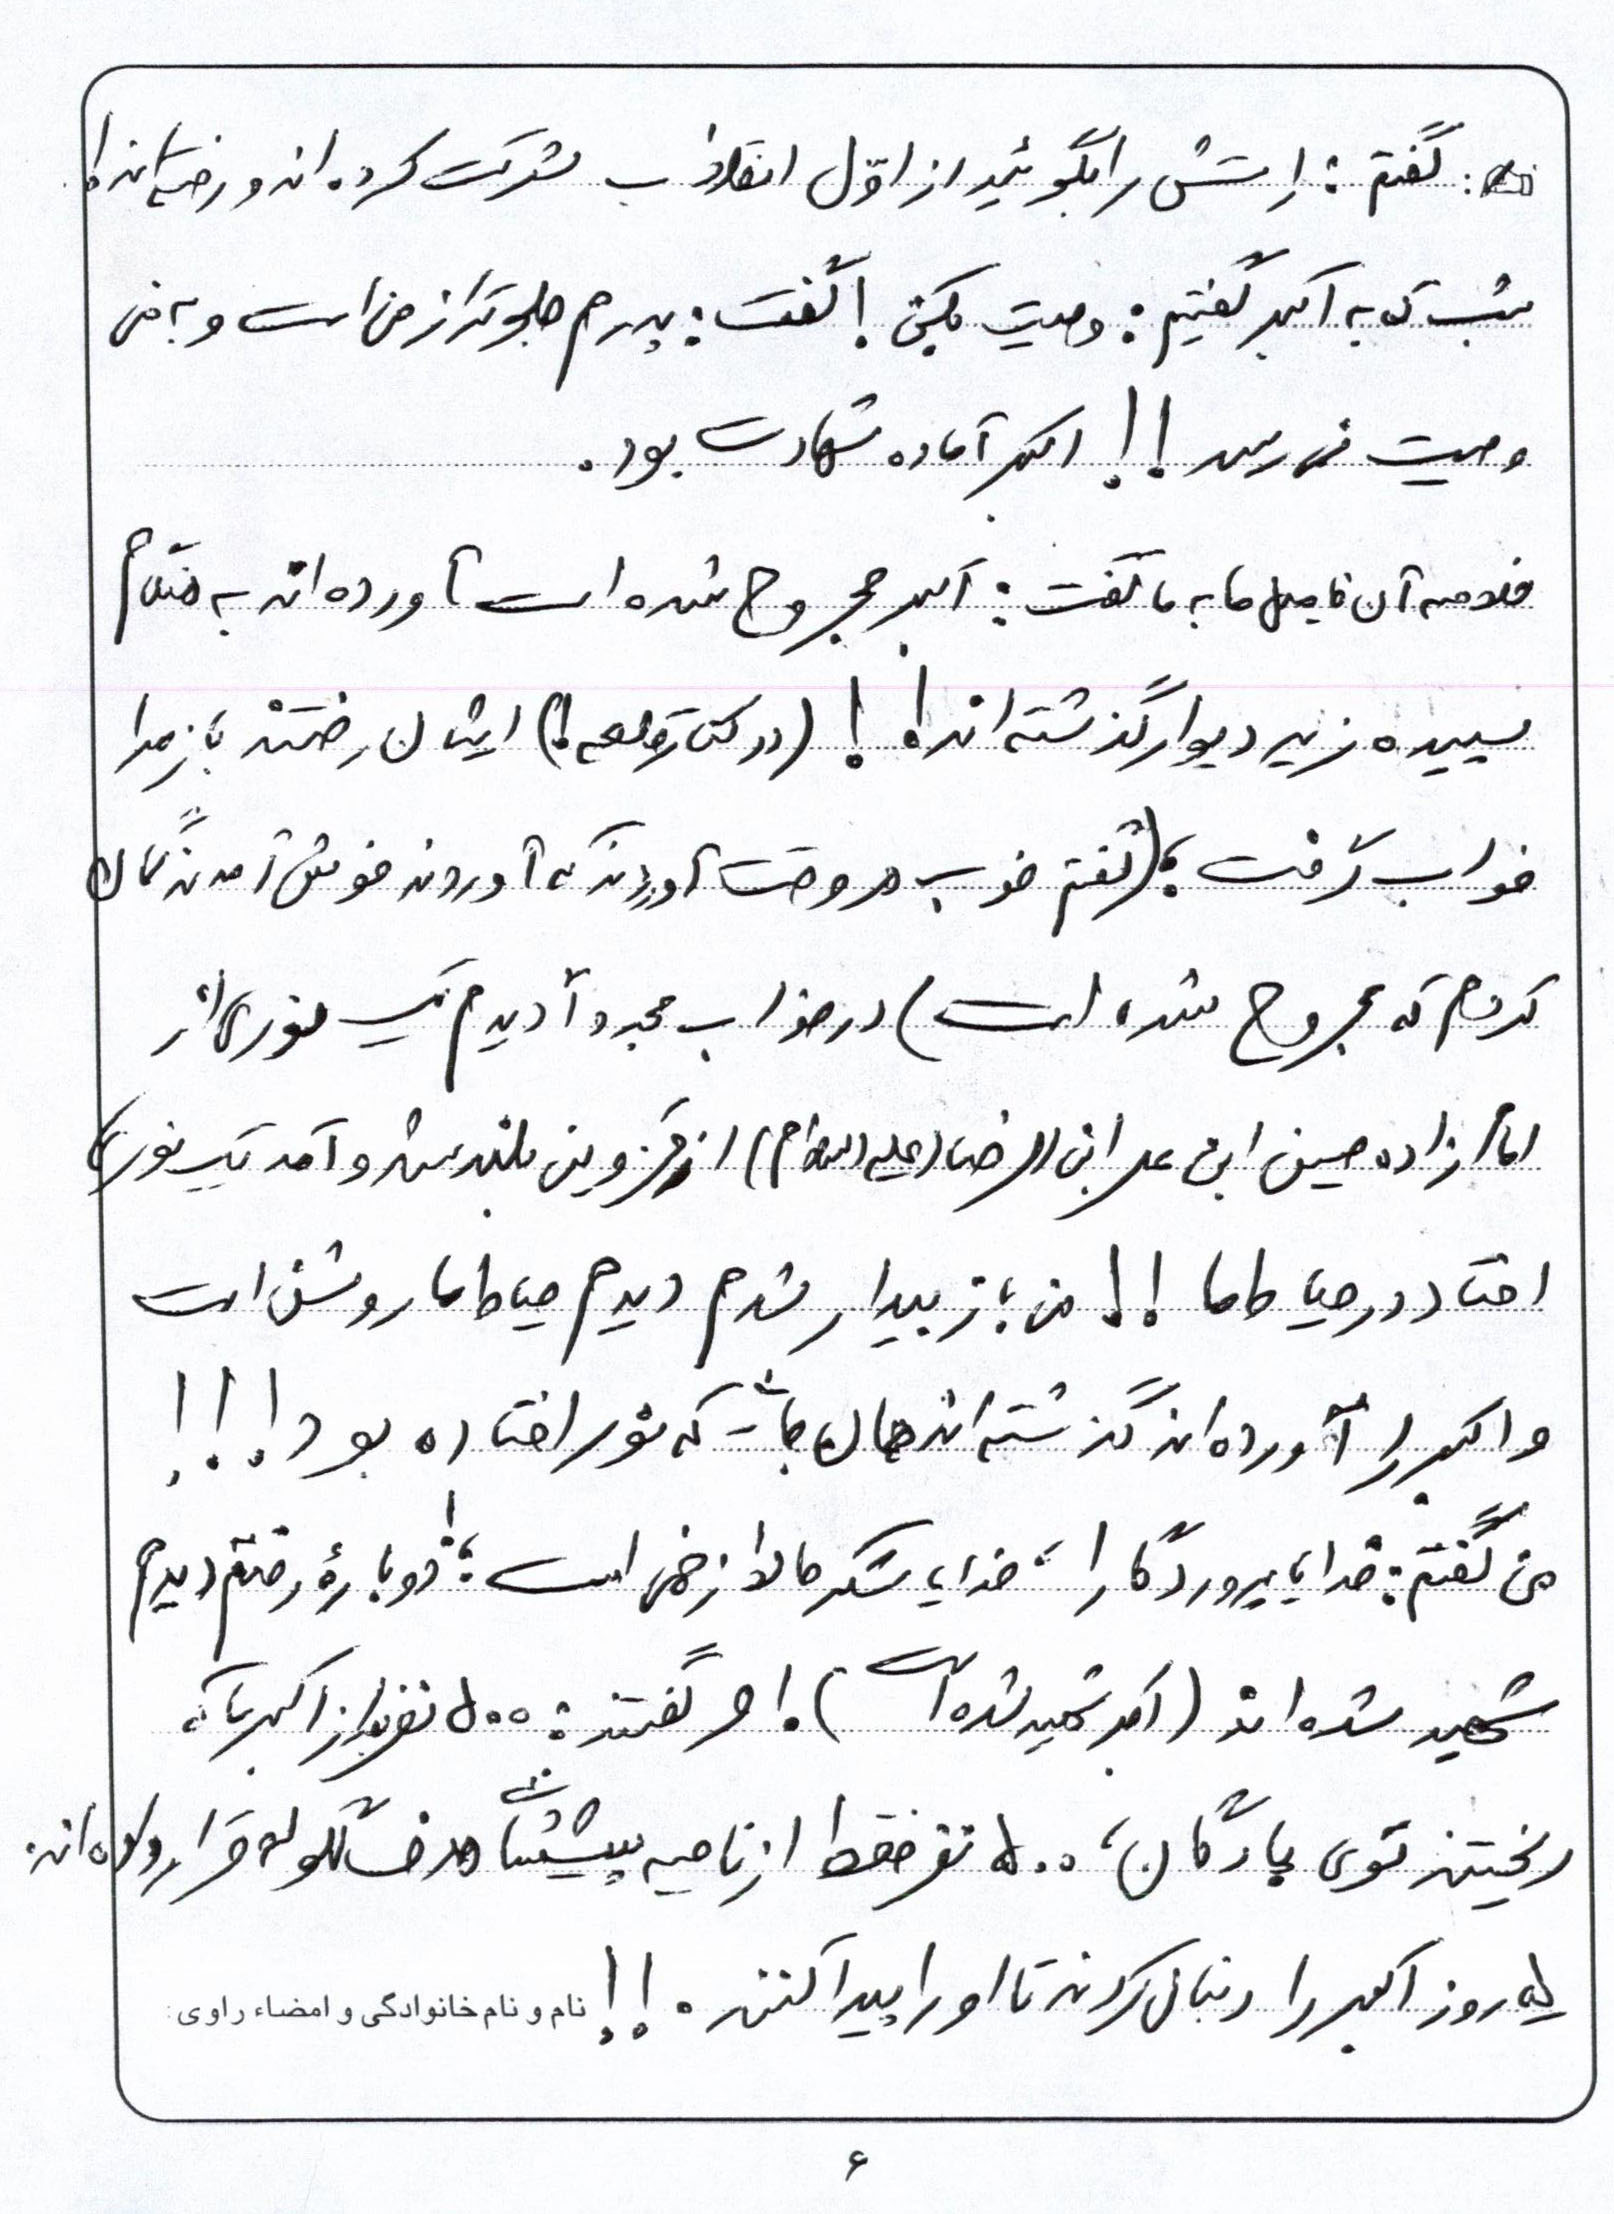 گفتم: راستش را بگوئید از اوّل انقلاب شرکت کرده اند و رفته اند!
شب که به اکبر گفتیم: وصیت بکن! گفت: پدرم جلوتر از من است و به من
وصیت نمی رسد!! اکبر آماده شهادت بود.
خلاصه آن فامیل ما به ما گفت: اکبر مجروح شده است آورده اند به مقام
سپیده زیر دیوار گذشته اند!! (در کنار قلعه!) ایشان رفتند باز مرا
خواب گرفت؛ (گفتم خوب هر وقت آوردند که آوردند خوش آمدند گمان
کردم که مجروح شده است) در خواب مجدداً دیدم یک نوری از
امامزاده حسین ابن علی ابن الرضا (علیه السلام) از قزوین بلند شد و آمد یک نوری
افتاد در حیاط ما!! من باز بیدار شدم دیدم حیاط ما روشن است
و اکبر را آورده اند گذشته اند همان جائیکه نور افتاده بود!!!
من گفتم: خدایا پروردگارا، خدایا شکر حالا زخمی است؛! دوباره رفتم دیدم
شهید شده اند (اکبر شهید شده است). گفتند: ۵۰۰ نفر از اکبر با که
ریختند توی پادگان، ۵۰۰ نفر فقط از ناحیه پیشانی هدف گلوله قرار داده اند.
روز اکبر را دنبال کردند تا او را پیدا کنند.!!
نام و نام خانوادگی و امضاء راوی:
۶